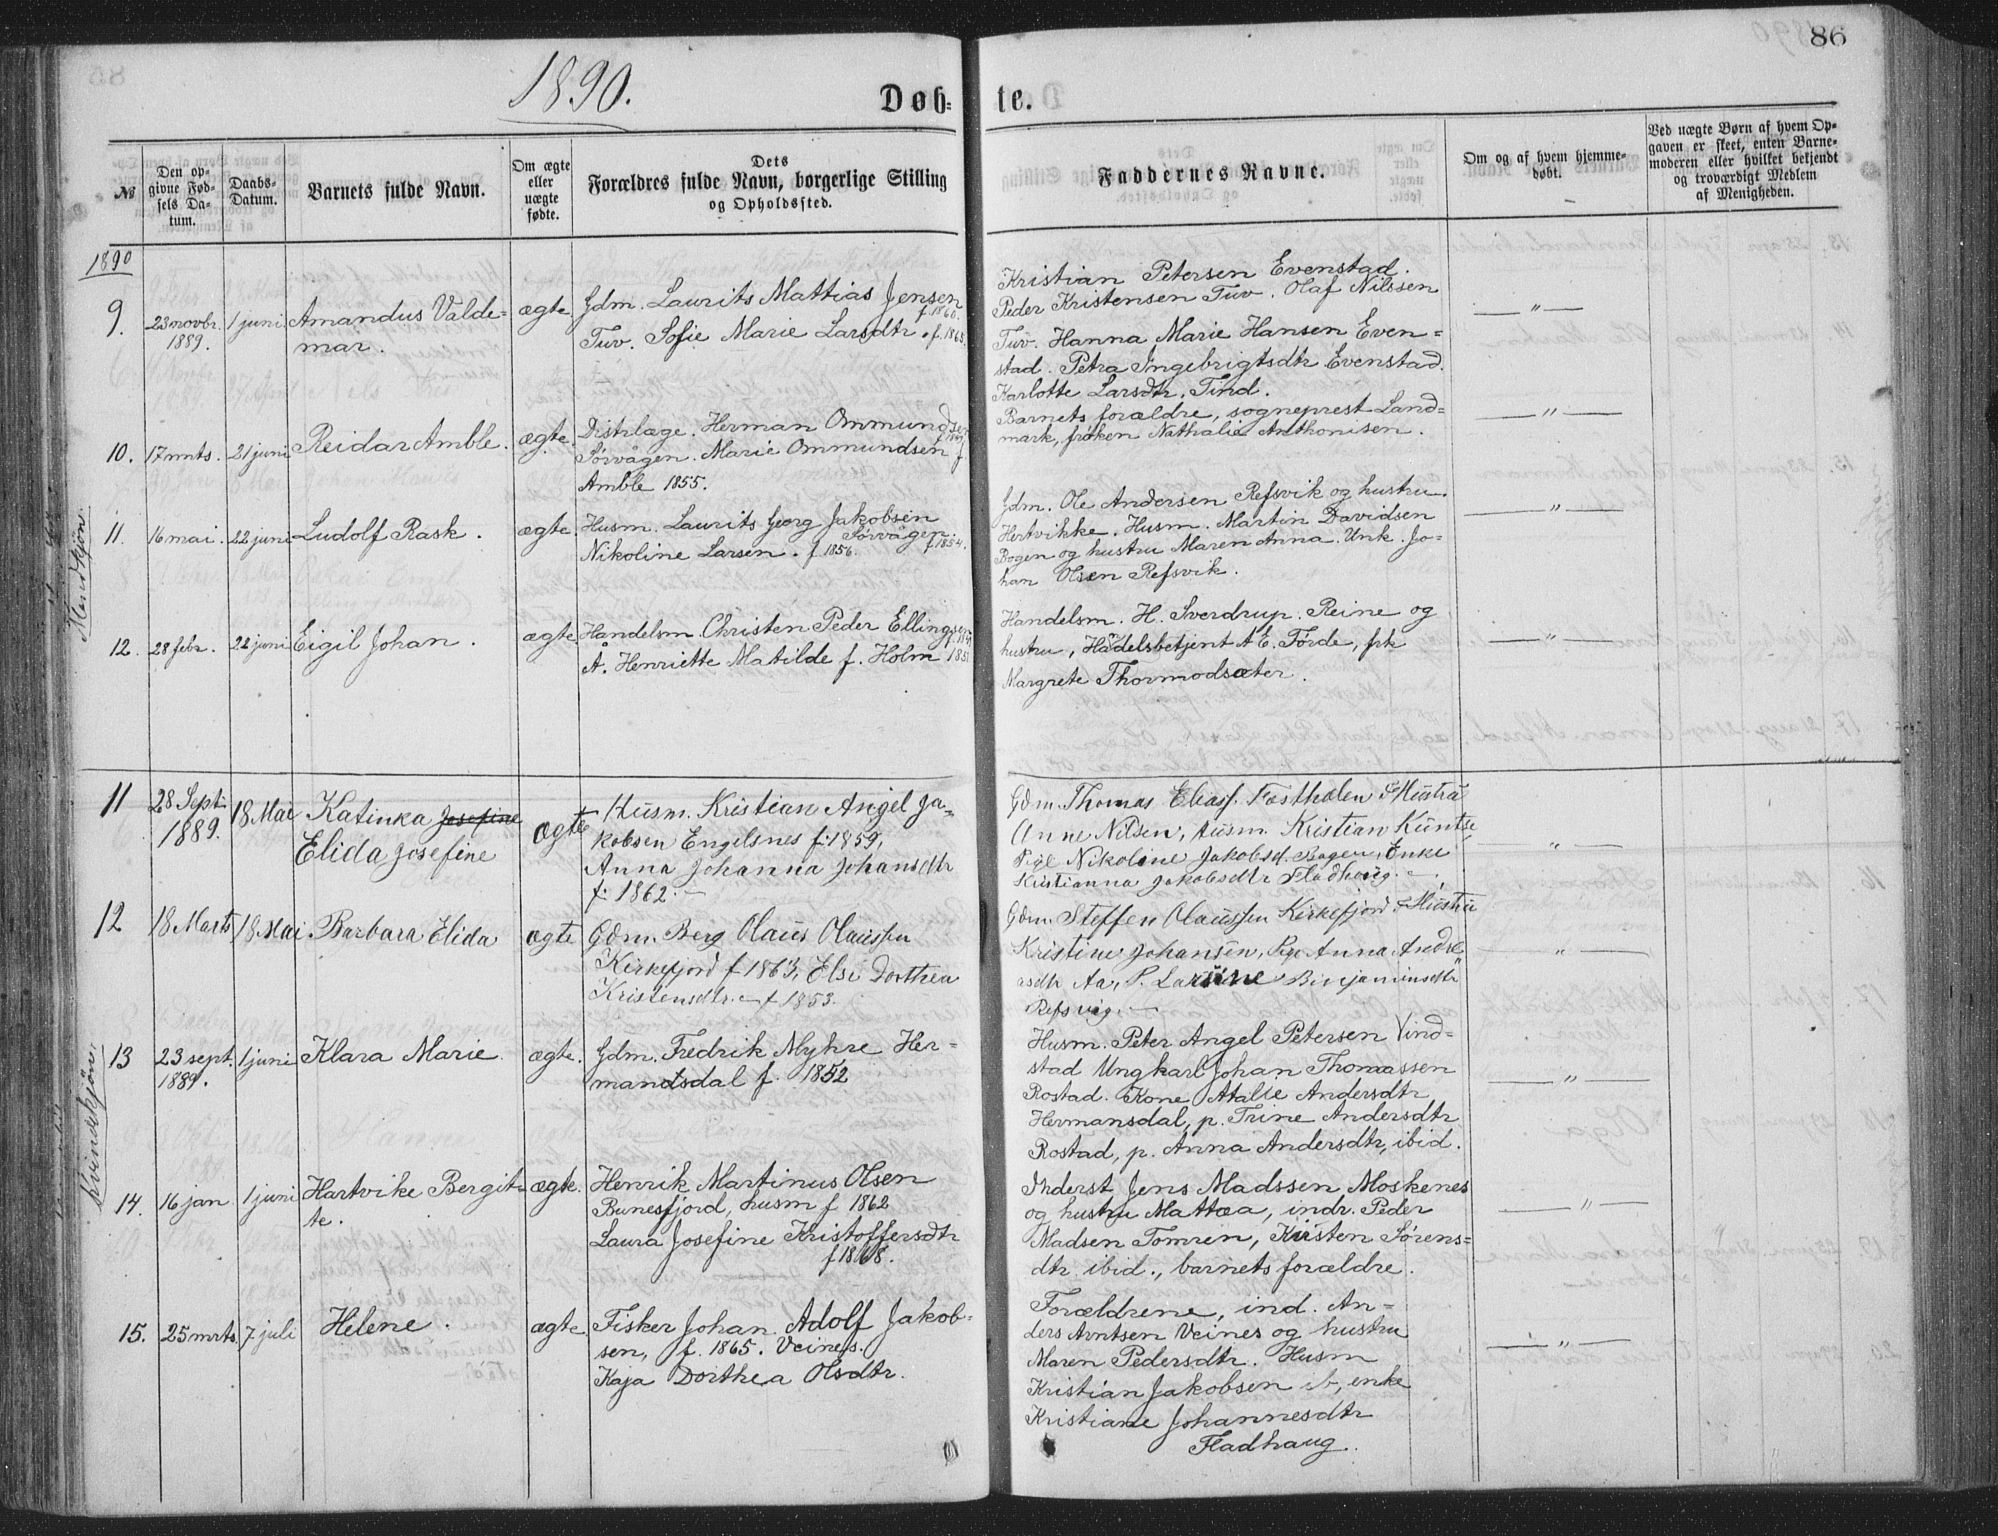 1890.
86
Døb-
te.
№
Den op-
givne Fød-
sels Da-
tum.
Daabs-
Datum.
Barnets fulde Navn.
Om ægte
eller
uægte
fødte.
Dets
Forældres fulde Navn, borgerlige Stilling
og Opholdssted.
Faddernes Navne.
Om og af hvem hjemme-
døbt.
Ved uægte Børn af hvem Op-
gaven er skeet, enten Barne-
moderen eller hvilket bekjendt
og troværdigt Medlem
af Menigheden.
1890
Mandkjøn.
9. 23 novbr. 1 juni Amandus Valde- ægte. Gdm. Laurits Mattias Jensen
1889. mar. f. 1860.
Tuv. Sofie Marie Larsdtr. f. 1865.
Kristian Petersen Evenstad.
Peder Kristensen Tuv. Olaf Nilssen
Tuv. Hanna Marie Hansen Even=
stad. Petra Ingebrigtsdtr Evenstad.
Karlotte Larsdtr. Tind.
— " —
10. 17 mrts. 21 juni Reidar Amble. ægte. Distrlæge. Herman Ommundsen
Sørvågen. Marie Ommundsen f
Amble 1855.
Barnets forældre, sogneprest Land=
mark, frøken Nathalie Anthonisen.
— " —
11. 16 mai. 22 juni Ludolf Rask. ægte. Husm. Laurits Georg Jakobsen
Sørvågen. f. 1854.
Nikoline Larsen. f. 1856.
Gdm. Ole Andersen Refsvik og hustru
Hertvikke. Husm. Martin Davidsen
Bogen og hustru Maren Anna. Unk. Jo-
han Olsen Refsvik.
— " —
12. 28 febr. 22 juni Eigil Johan. ægte. Handelsm. Christen Peder Ellingsen
Å. Henriette Matilde f. Holm
Handelsm. H. Sverdrup. Reine og
hustru, Handelsbetjent A E. Förde, frk
Margrete Thormodsæter.
— " —
Kvindekjøn.
11 28 Sept. 18 Mai Katinka Josefine ægte Husm. Kristian Angel Ja-
1889. Elida Josefine kobsen Engelsnes f. 1859,
Anna Johanna Johansdtr
f. 1862. —
Gdm. Thomas Eliass. Fastholen & Hustru
Anne Nilsen, Husm. Kristian Küntse,
Pige Nikoline Jakobsd. Bogen, Enke
Kristianna Jakobsdtr Fladhoug. —
— " —
12 18 Marts 18 Mai Barbara Elida ægte Gdm. Berg Olaus Olaussen
Kirkefjord f 1863, Else Dorthea
Kristensdtr. — f 1853.
Gdm. Steffen Olaussen Kirkefjord & Hustru
Kristine Johansen, Pige Anna Andre-
asdtr Aa, P. Larsine Benjaminsdtr
Refsvig. —
— " —
13 23 sept. 1 juni Klara Marie. ægte. Gdm. Fredrik Myhre Her-
1889. mandsdal f. 1852
Husm. Peter Angel Petersen Vind-
stad Ungkarl Johan Thomassen
Rostad. Kone Atalie Andersdtr
Hermansdal, p. Trine Andersdtr
Rostad, p. Anna Andersdtr, ibid.
— " —
14. 16 jan 1 juni Hartvike Bergit- ægte. Henrik Martinus Olsen
te. Bunesfjord, husm f 1862
Laura Josefine Kristoffersdtr
f 1868.
Inderst Jens Madssen Moskenes
og hustru Mattea, indr. Peder
Madsen Tomren, Kirsten Sørens=
dtr ibid., barnets forældre.
— " —
15. 25 mrts. 7 juli Helene. ægte. Fisker Johan Adolf Jakob-
sen, f. 1865. Veines.
Kaja Dorthea Olsdtr.
Forældrene, ind. An-
ders Arntsen Veines og hustru
Maren Pedersdtr. Husm
Kristian Jakobsen ib, enke
Kristiane Johannesdtr
Fladhaug.
— " —